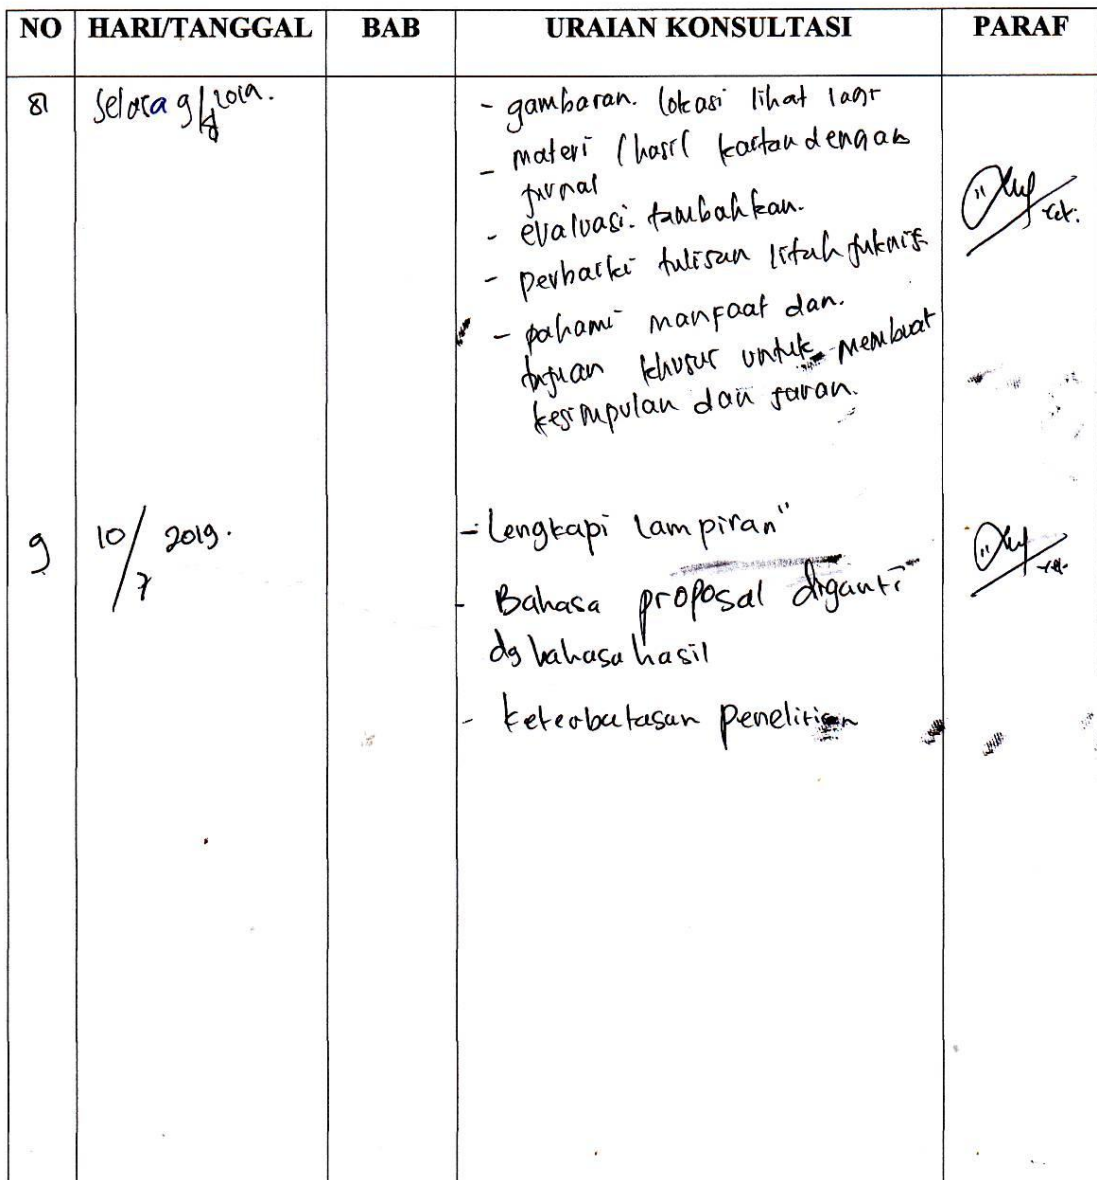 NO HARI/TANGGAL BAB URAIAN KONSULTASI PARAF
8 Selasa 9/ 2019.
- gambaran. lokasi lihat lagi
- materi / hasil kaitan dengan
jurnal
- evaluasi. tambahkan.
- perbaiki tulisan lihat juknis
- pahami manfaat dan.
tujuan khusus untuk membuat
kesimpulan dan saran.
9 10/7 2019.
- Lengkapi lampiran"
- Bahasa proposal diganti
dg bahasa hasil
- keterbatasan penelitian